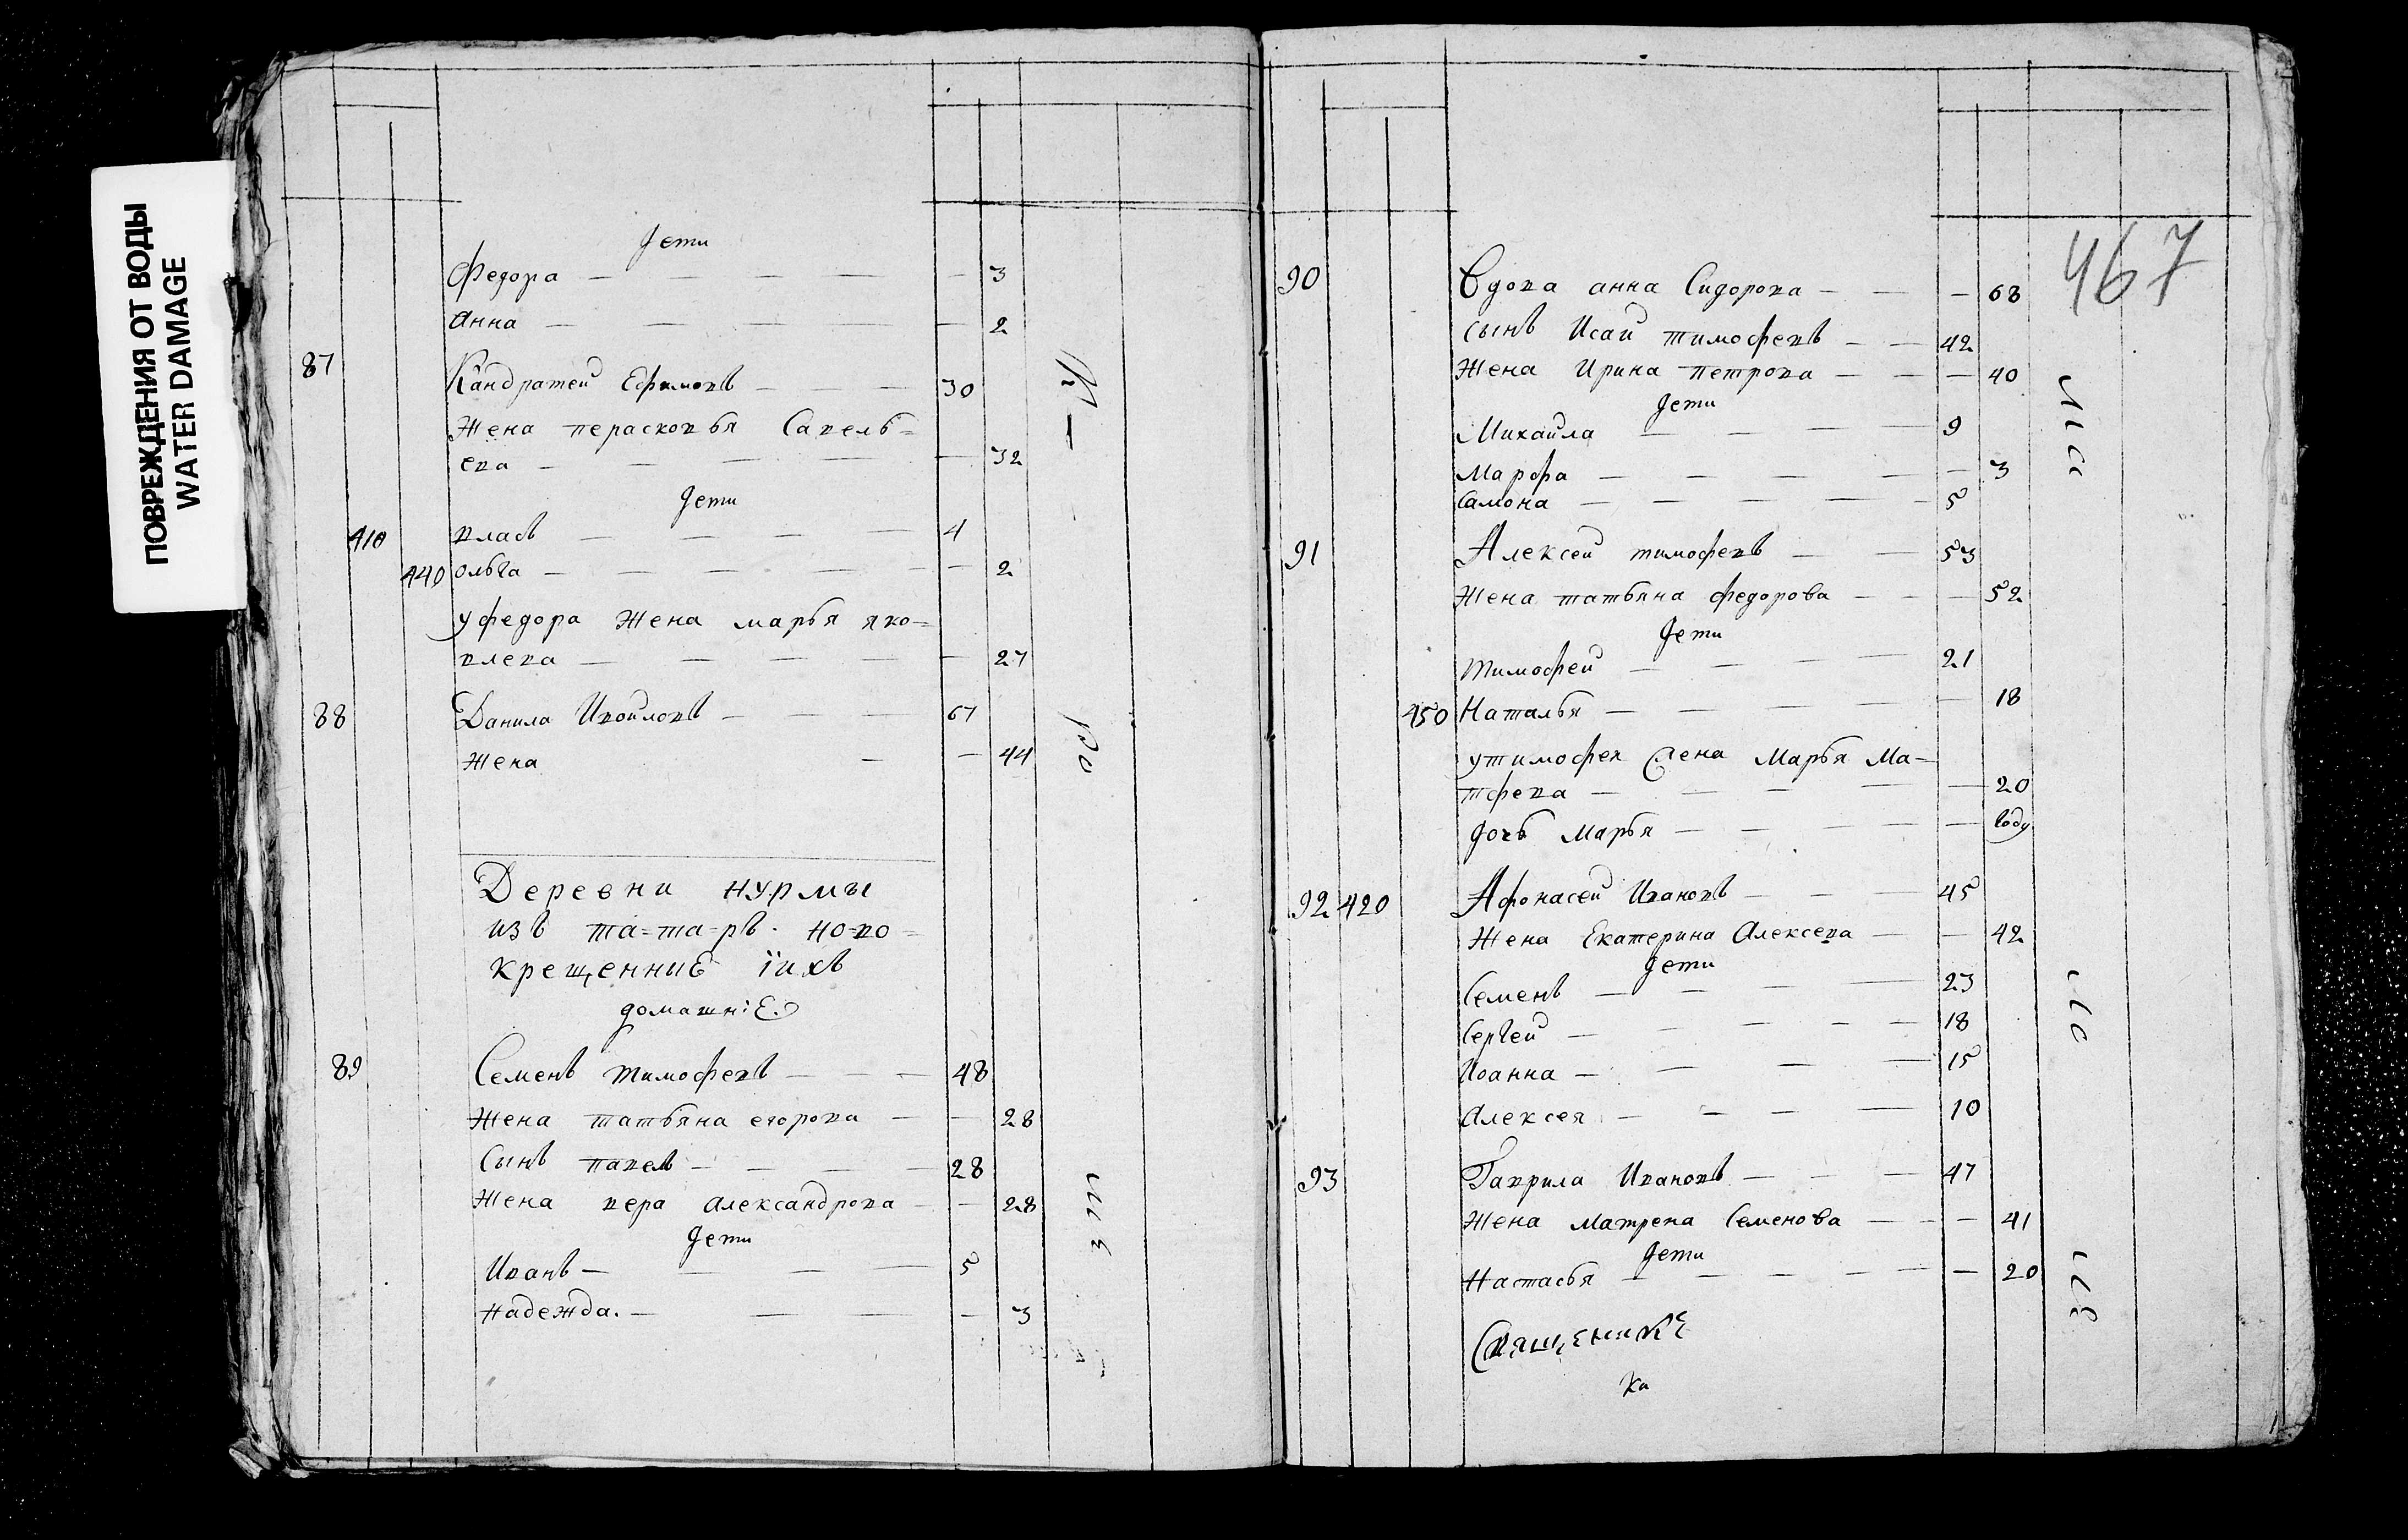 ПОВРЕЖДЕНИЯ ОТ ВОДЫ
WATER DAMAGE
дети
Федора — 3
анна — 2
87 Кандратеи Ефимовъ — 30
Жена перасковья Савель=
ева — 32
дети
410 власъ — 4
440 ольга — 2
у федора Жена марья яко=
влева — 27
88 Данила Ивоиловъ — 67
Жена — 44
Деревни нурмы
изъ та=та=ръ но=во=
крещенниЕ їихъ
домашнiЕ
89 Семенъ тимофевъ — 48
Жена татьяна егорова — 28
Сынъ павелъ — 28
Жена вера александрова — 28
дети
Иванъ — 5
надежда. — 3
467
90 Вдова анна Сидорова — 68
сынъ Исаи тимофевъ — 42
Жена Ирина петрова — 40
дети
Михаила — 9
Марфа — 3
Самона — 5
91 Алексеи тимофевъ — 53
Жена татьяна федорова — 52
дети
тимофеи — 21
450 Наталья — 18
утимофея Жена Марья Ма=
тфева — 20
дочь Марья — году
92 420 Афонасеи Ивановъ — 45
Жена Екатерина Алексева — 42
дети
Семенъ — 23
Сергеи — 18
Иоанна — 15
алексея — 10
93 Гаврила Ивановъ — 47
Жена Матрена Семенова — 41
дети
Настасья — 20
СвященикЕ
ка